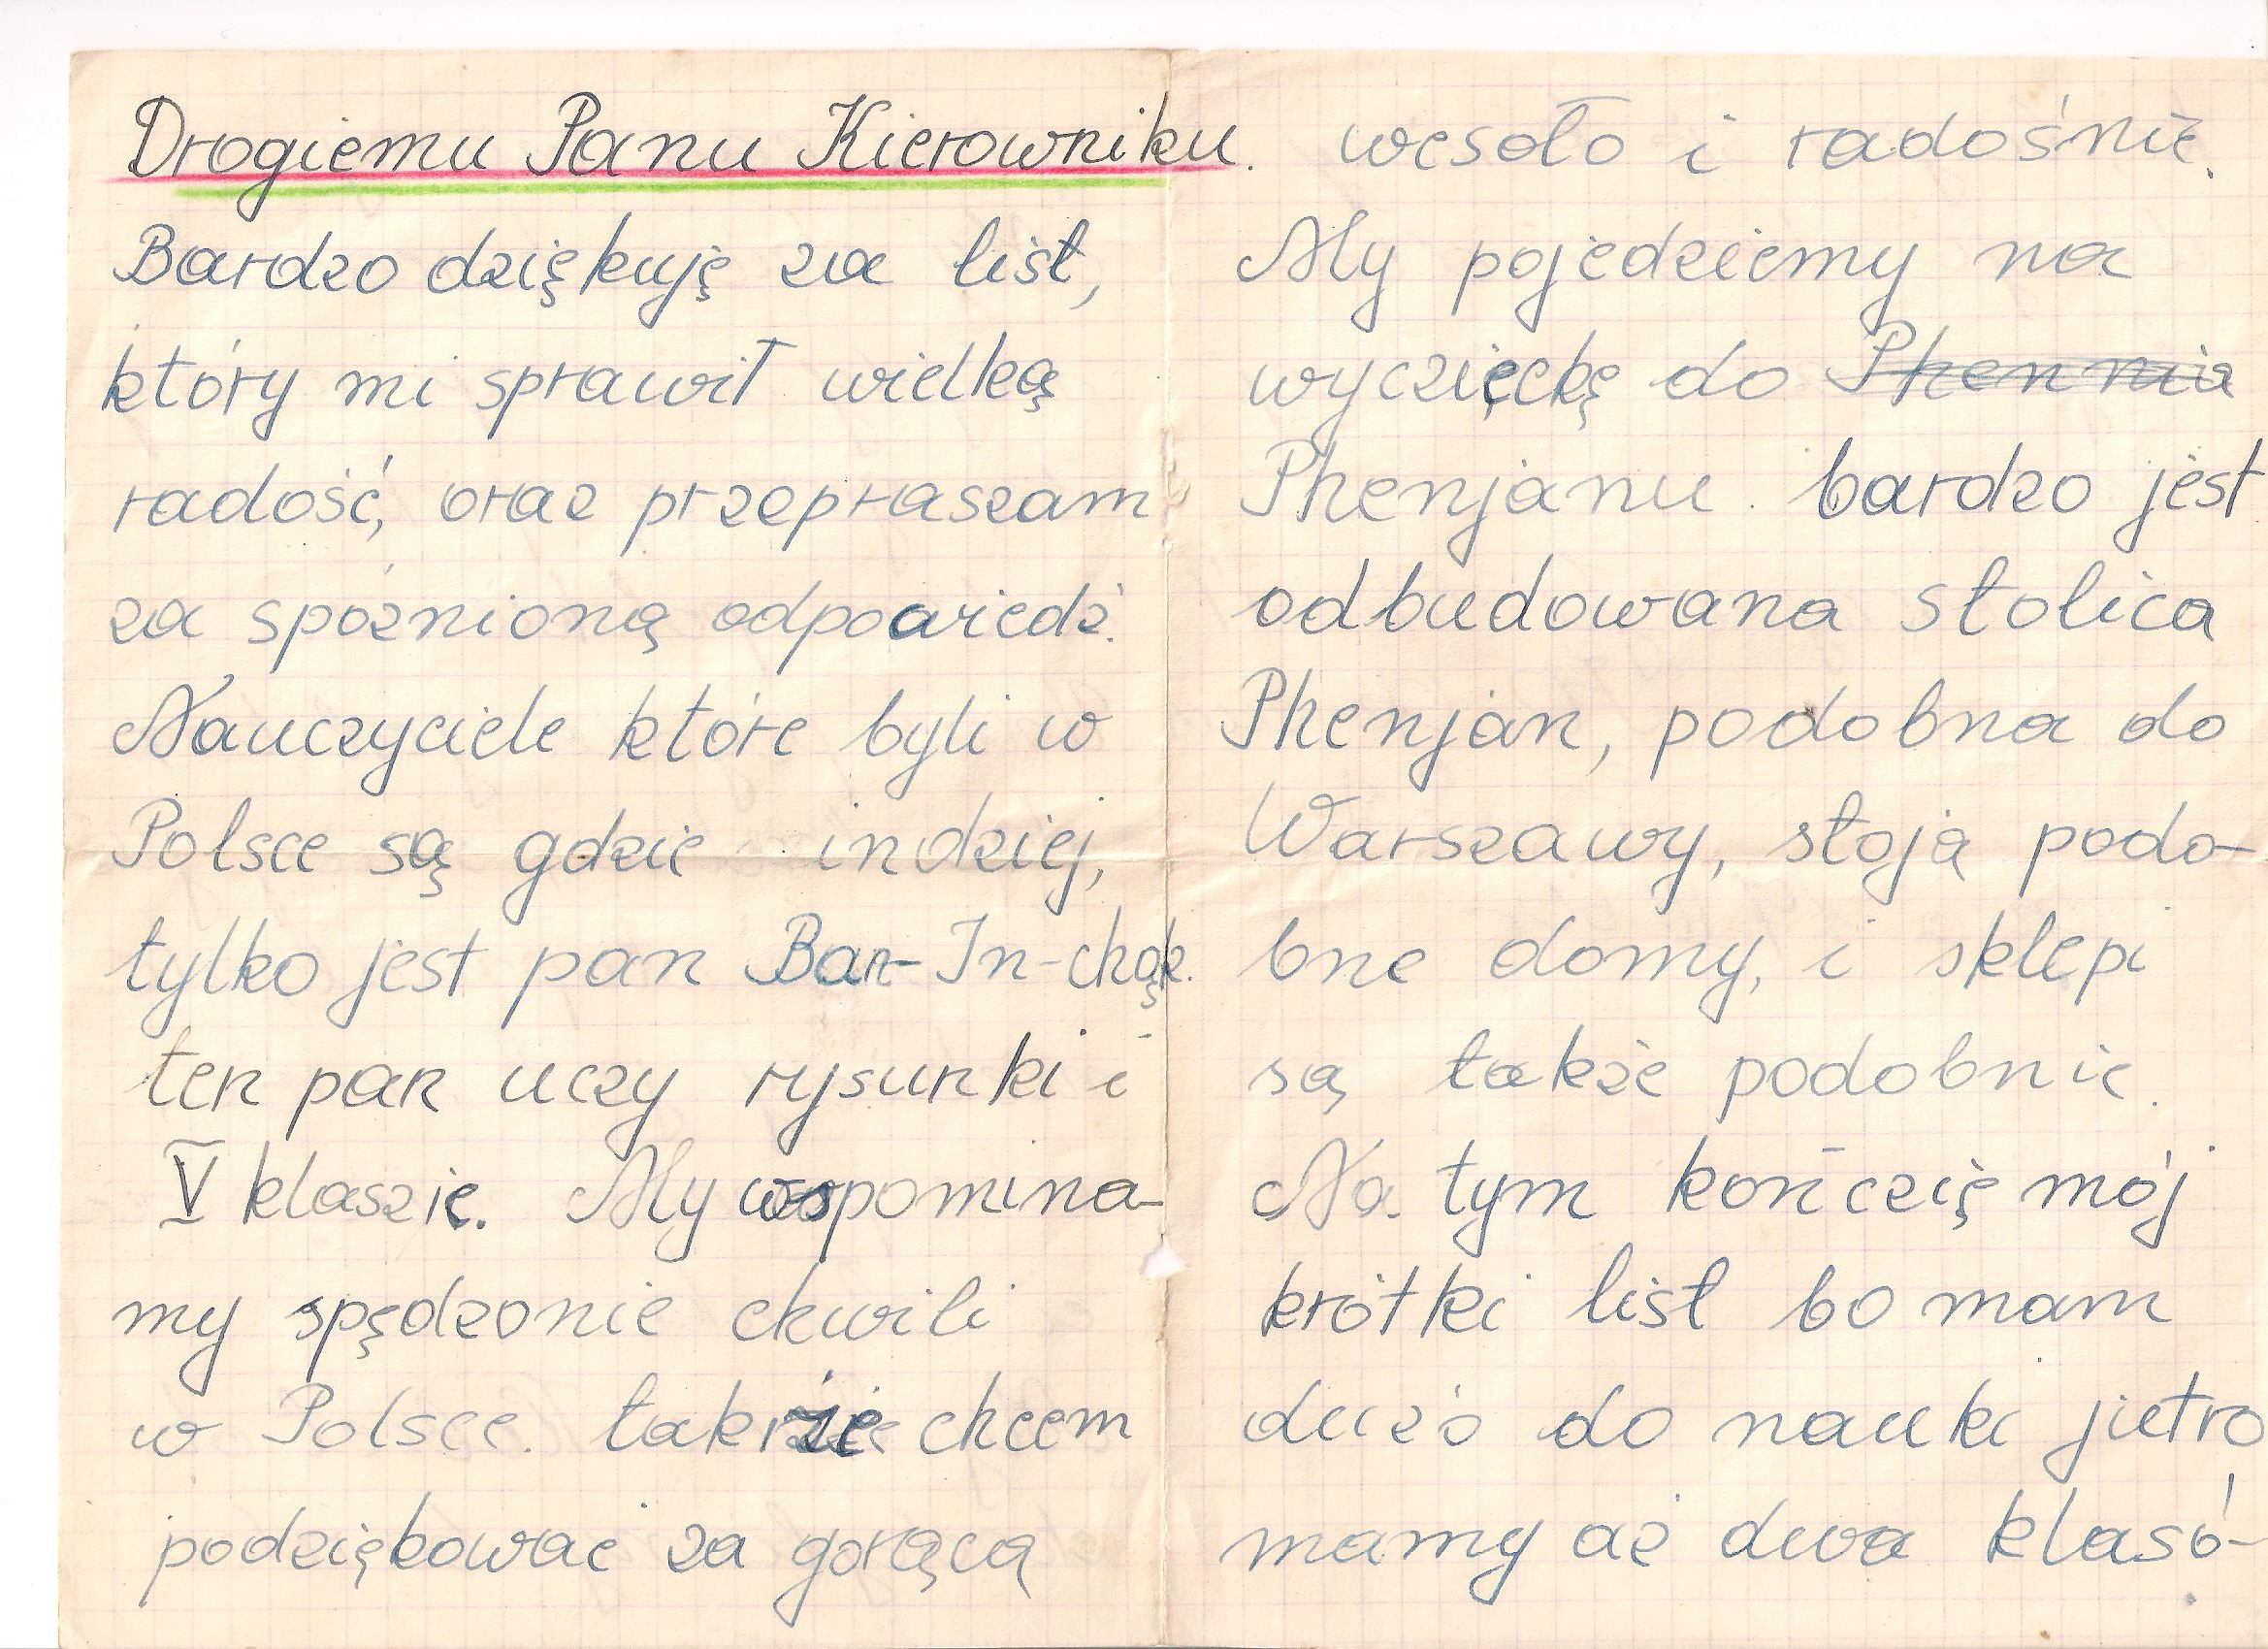 Drogiemu Panu Kierowniku.
Bardzo dziękuję za list,
który mi sprawił wielką
radość, oraz przepraszam
za spóznioną odpowiedź.
Nauczyciele które byli w
Polsce są gdzie indziej,
tylko jest pan Ban-In-chąk.
ten pan uczy rysunki i
V klaszie. My wspomina-
my spędzonie chwili
w Polsce. takrzie chcem
podziękowac za gorącą
wesoło i radośnie.
My pojedziemy na
wyczięckę do Phennia
Phenjanu. bardzo jest
odbudowana stolica
Phenjan, podobna do
Warszawy, stoją podo-
bne domy, i sklepi
są także podobnie.
Na tym kończię mój
krótki list bo mam
dużo do nauki jutro
mamy aż dwa klasó-